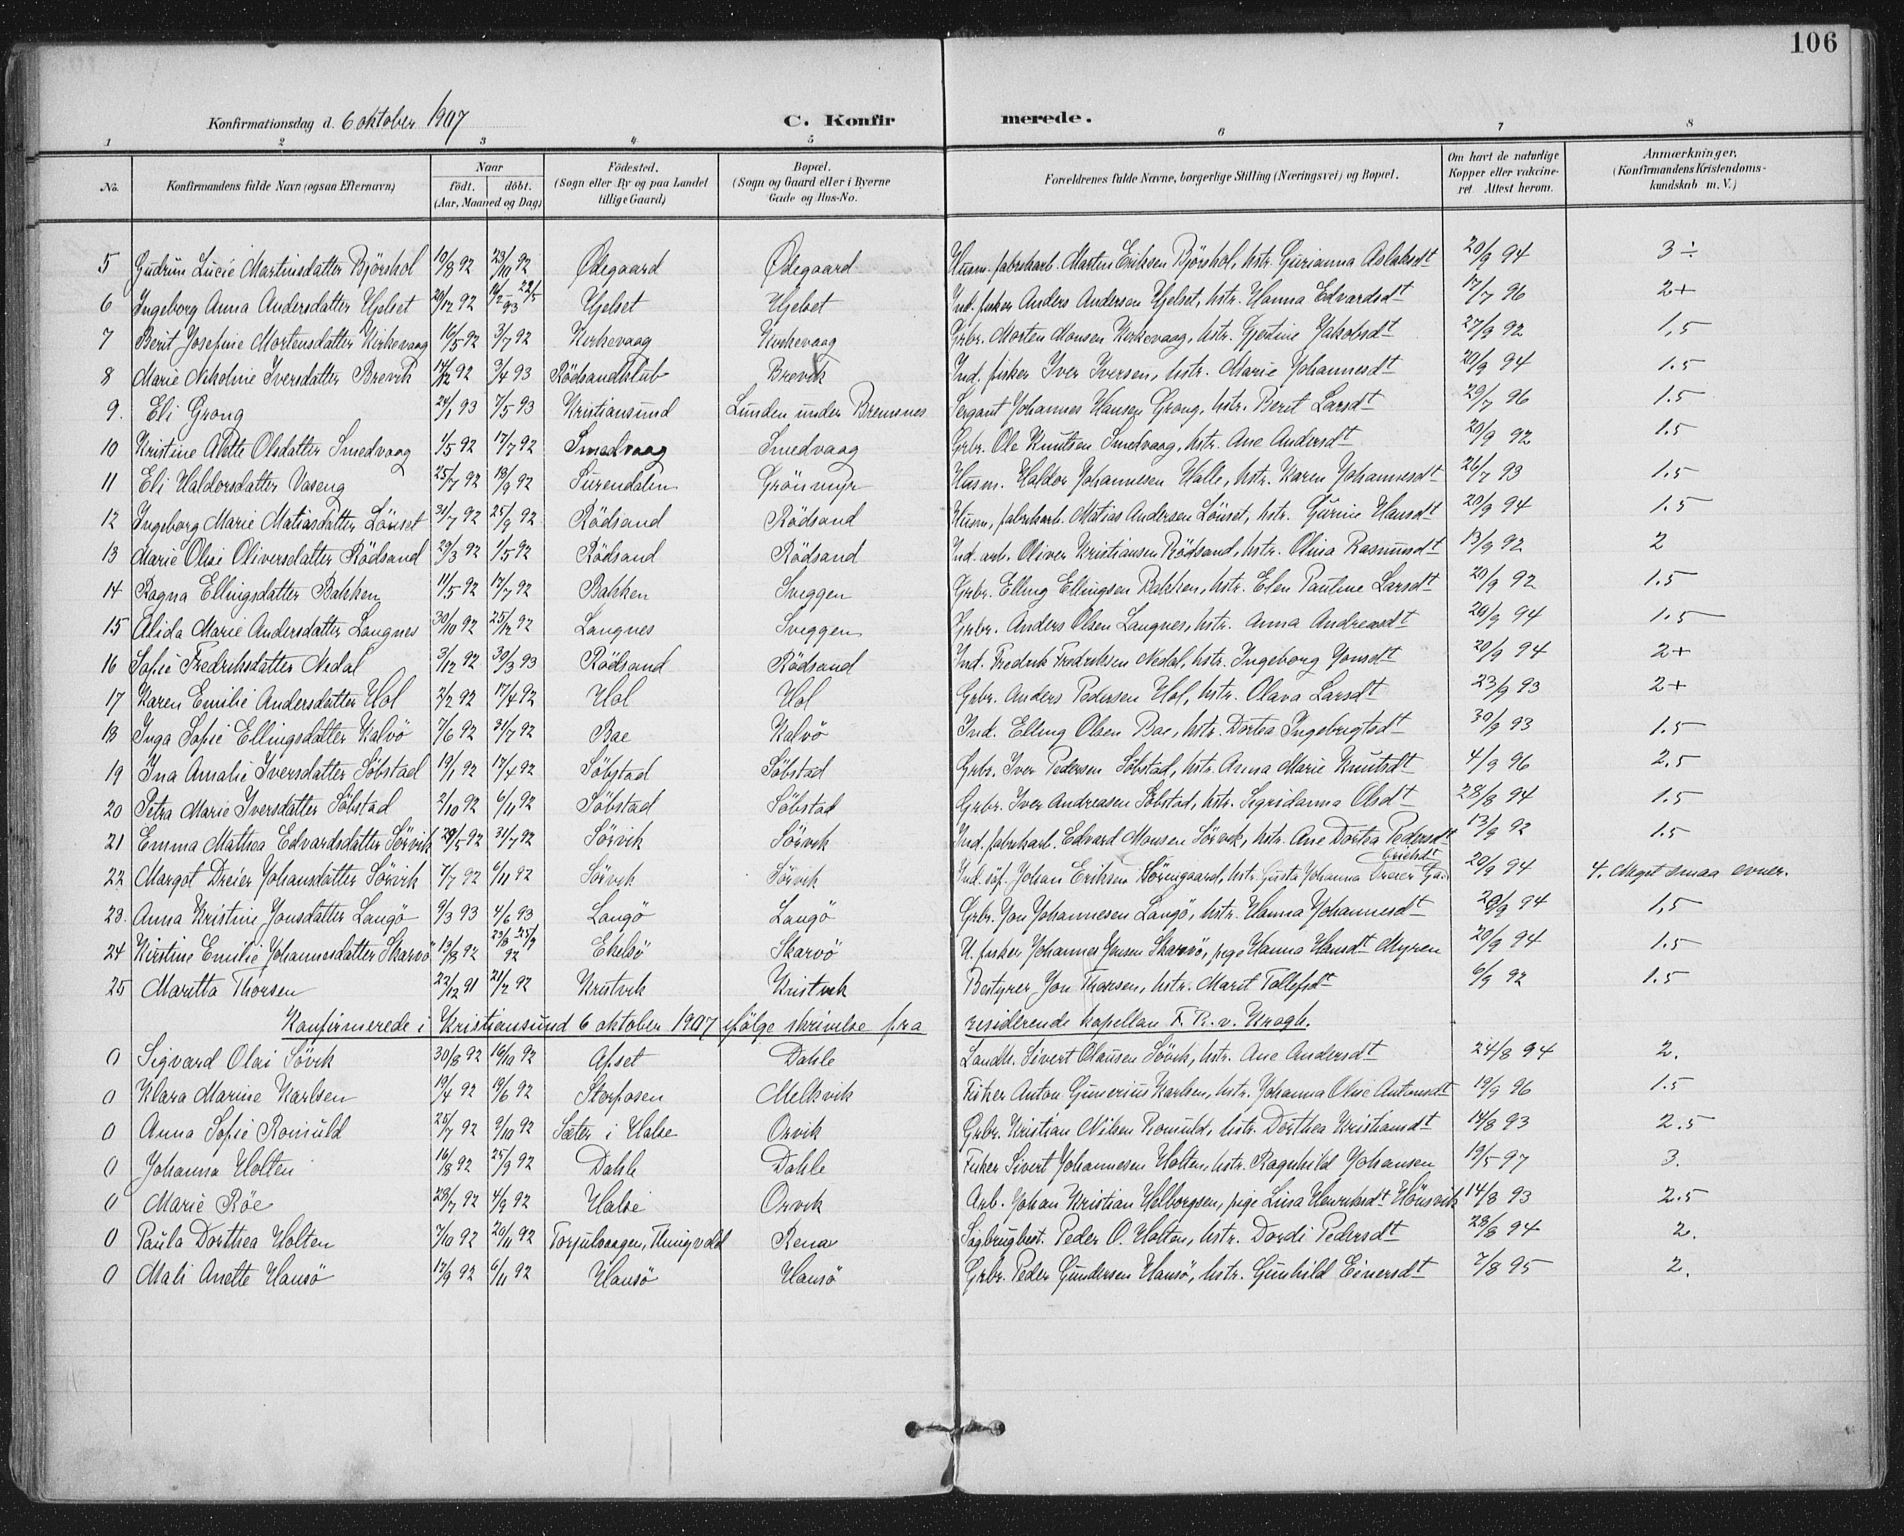 106
Konfirmationsdag d. 6 oktober 1907 C. Konfirmerede.
1 2 3 4 5 6 7 8
No. Konfirmandens fulde Navn (ogsaa Efternavn) Naar født. døbt. (Aar, Maaned og Dag) Födested. (Sogn eller By og paa Landet tillige Gaard) Bopæl. (Sogn og Gaard eller i Byerne Gade og Hus-No. Forældrenes fulde Navne, borgerlige Stilling (Næringsvei) og Bopæl. Om havt de naturlige Kopper eller vakcineret. Attest herom. Anmærkninger. (Konfirmandens Kristendomskundskab m. V.)
5 Gudrun Lucie Martinsdatter Bjørshol 10/8 92 23/10 92 Ødegaard Ødegaard Husm. fabrikarb. Martin Eriksen Bjørshol, hstr. Gurianna Aslaksdt 20/9 94 3÷
6 Ingeborg Anna Andersdatter Hjelset 20/12 92 Hjelset Hjelset Ind. fisker Anders Andersen Hjelset, hstr. Hanna Edvardsdt 17/7 96 2+
7 Berit Josefine Mortensdatter Kirkevaag 16/5 92 3/7 92 Kirkevaag Kirkevaag Grbr. Morten Monsen Kirkevaag, hstr. Gjertine Jakobsdt 27/9 92 1,5
8 Marie Nikoline Iversdatter Brevik 14/12 92 3/4 93 Rödsandklub Brevik Ind. fisker Iver Iversen, hstr. Marie Johannesdt 20/9 94 1.5
9. Eli Grong 24/1 93 7/5 93 Kristiansund Lunden under Bremsnes Sergant Johannes Hansen Grong, hstr. Beret Larsdt 29/7 96 1.5
10 Kristine Alette Olsdatter Smedvaag 1/5 92 17/7 92 Smedvaag Smedvaag Grbr. Ole Knutsen Smedvaag, hstr. Ane Andersdt 20/9 92 1.5
11 Eli Haldorsdatter Vaseng 25/7 92 18/9 92 Surendalen Grönmyr Husm. Haldor Johannesen Halle, hstr. Karen Johannesdt 26/7 93 1.5
12 Ingeborg Marie Matiasdatter Lönset 31/7 92 25/9 92 Rödsand Rödsand Husm, fabrikarb. Matias Andersen Lönset, hstr. Gurine Hansdt 20/9 94 1.5
13 Marie Olise Oliversdatter Rödsand 29/3 92 1/5 92 Rödsand Rödsand Ind. arb. Oliver Kristiansen Rödsand, hstr. Olina Rasmusdt 13/9 92 2
14 Ragna Ellingsdatter Bakken 11/5 92 17/7 92 Bakken Sveggen Grbr. Elling Ellingsen Bakken, hstr. Elen Pauline Larsdt 20/9 92 1.5
15 Alida Marie Andersdatter Langnes 30/10 92 25/12 92 Langnes Sveggen Grbr. Anders Olsen Langnes, hstr. Anna Andreasdt 20/9 94 1.5
16 Sofie Fredriksdatter Nedal 3/12 92 30/3 93 Rödsand Rödsand Ind. Fredrik Fredriksen Nedal, hstr. Ingeborg Jonsdt 20/9 94 2+
17 Karen Emilie Andersdatter Hol 2/2 92 17/4 92 Hol Hol Grbr. Anders Pedersen Hol, hstr. Olava Larsdt 23/9 93 2+
18 Inga Sofie Ellingsdatter Kalvö 7/6 92 31/7 92 Bae Kalvö Ind. Elling Olsen Bae, hstr. Dortea Ingebrigtsdt 30/9 93 1.5
19 Ina Amalie Iversdatter Söbstad 19/1 92 17/4 92 Söbstad Söbstad Grbr. Iver Pedersen Söbstad, hstr. Anna Marie Knutsdt 4/9 96 2.5
20 Petra Marie Iversdatter Söbstad 2/10 92 6/11 92 Söbstad Söbstad Grbr. Iver Andreasen Söbstad, hstr. Sigridanna Olsdt 28/8 94 1.5
21 Emma Mathea Edvardsdatter Sörvik 29/5 92 31/7 92 Sörvik Sörvik Ind. fabrikarb. Edvard Monsen Sörvik, hstr. Ane Dortea Pedersdt 13/9 92 1.5
22 Margot Dreier Johansdatter Sörvik 7/7 92 6/11 92 Sörvik Sörvik Ind. Johan Eriksen Sörengaard, hstr. Johanna Dreier 20/9 94 4. Meget smaa evner.
23. Anna Kristine Jonsdatter Langö 9/3 93 4/6 93 Langö Langö Grbr. Jon Johannesen Langö, hstr. Hanna Johannesdt 20/9 94 1,5
24 Kirstine Emilie Johannesdatter Skarvö 13/8 92 23/8 25/9 92 Ekelsö Skarvö U. fisker Johannes Jensen Skarvö, pige Hanna Hansdt Myren 20/9 94 1.5
25 Maritta Thorsen 22/12 91 21/2 92 Kristvik Kristvik Bestyrer Jon Thorsen, hstr. Marit Tollefsdt 6/9 92 1.5
Konfirmerede i Kristiansund 6 oktober 1907 ifölge skrivelse fra residerende kapellan F. R. v. Krogh.
0 Sigvard Olai Sövik 30/8 92 16/10 92 Apset Dahle Landh. Sivert Olausen Sövik, hstr. Ane Andersdt 24/8 94 2.
0 Klara Marine Karlsen 19/4 92 19/6 92 Storfosen Melkvik Fisker Anton Gunerius Karlsen, hstr. Johanna Oline Antonsdt 19/9 96 1.5
0 Anna Sofie Romuld 25/7 92 9/10 92 Sæter i Halse Orvik Grbr. Kristian Nilsen Romuld, hstr. Dorthea Kristiansdt 14/8 93 2.5
0 Johanna Holten 16/8 92 25/9 92 Dahle Dahle Fisker Sivert Johannesen Holten, hstr. Ragnhild Johansen 19/5-97 3.
0 Marie Röe 23/7 92 4/9 92 Halse Orvik Arb. Johan Kristian Helborgsen, pige Lina Henriksdt Hönsvik 14/8 93 2.5
0 Paula Dorthea Holten 7/10 92 20/11 92 Torjulvaagen, Thingvold Rena Sagbrugbest. Peder O. Holten, hstr. Dordi Pedersdt 28/8 94 2.
0 Mali Anette Hansö 17/9 92 6/11 92 Hansö Hansö Grbr. Peder Gundersen Hansö, hstr. Gunhild Einersdt 7/8 95 2.